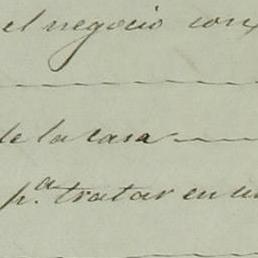 el negocio con
de la casa
p.a tratar en un